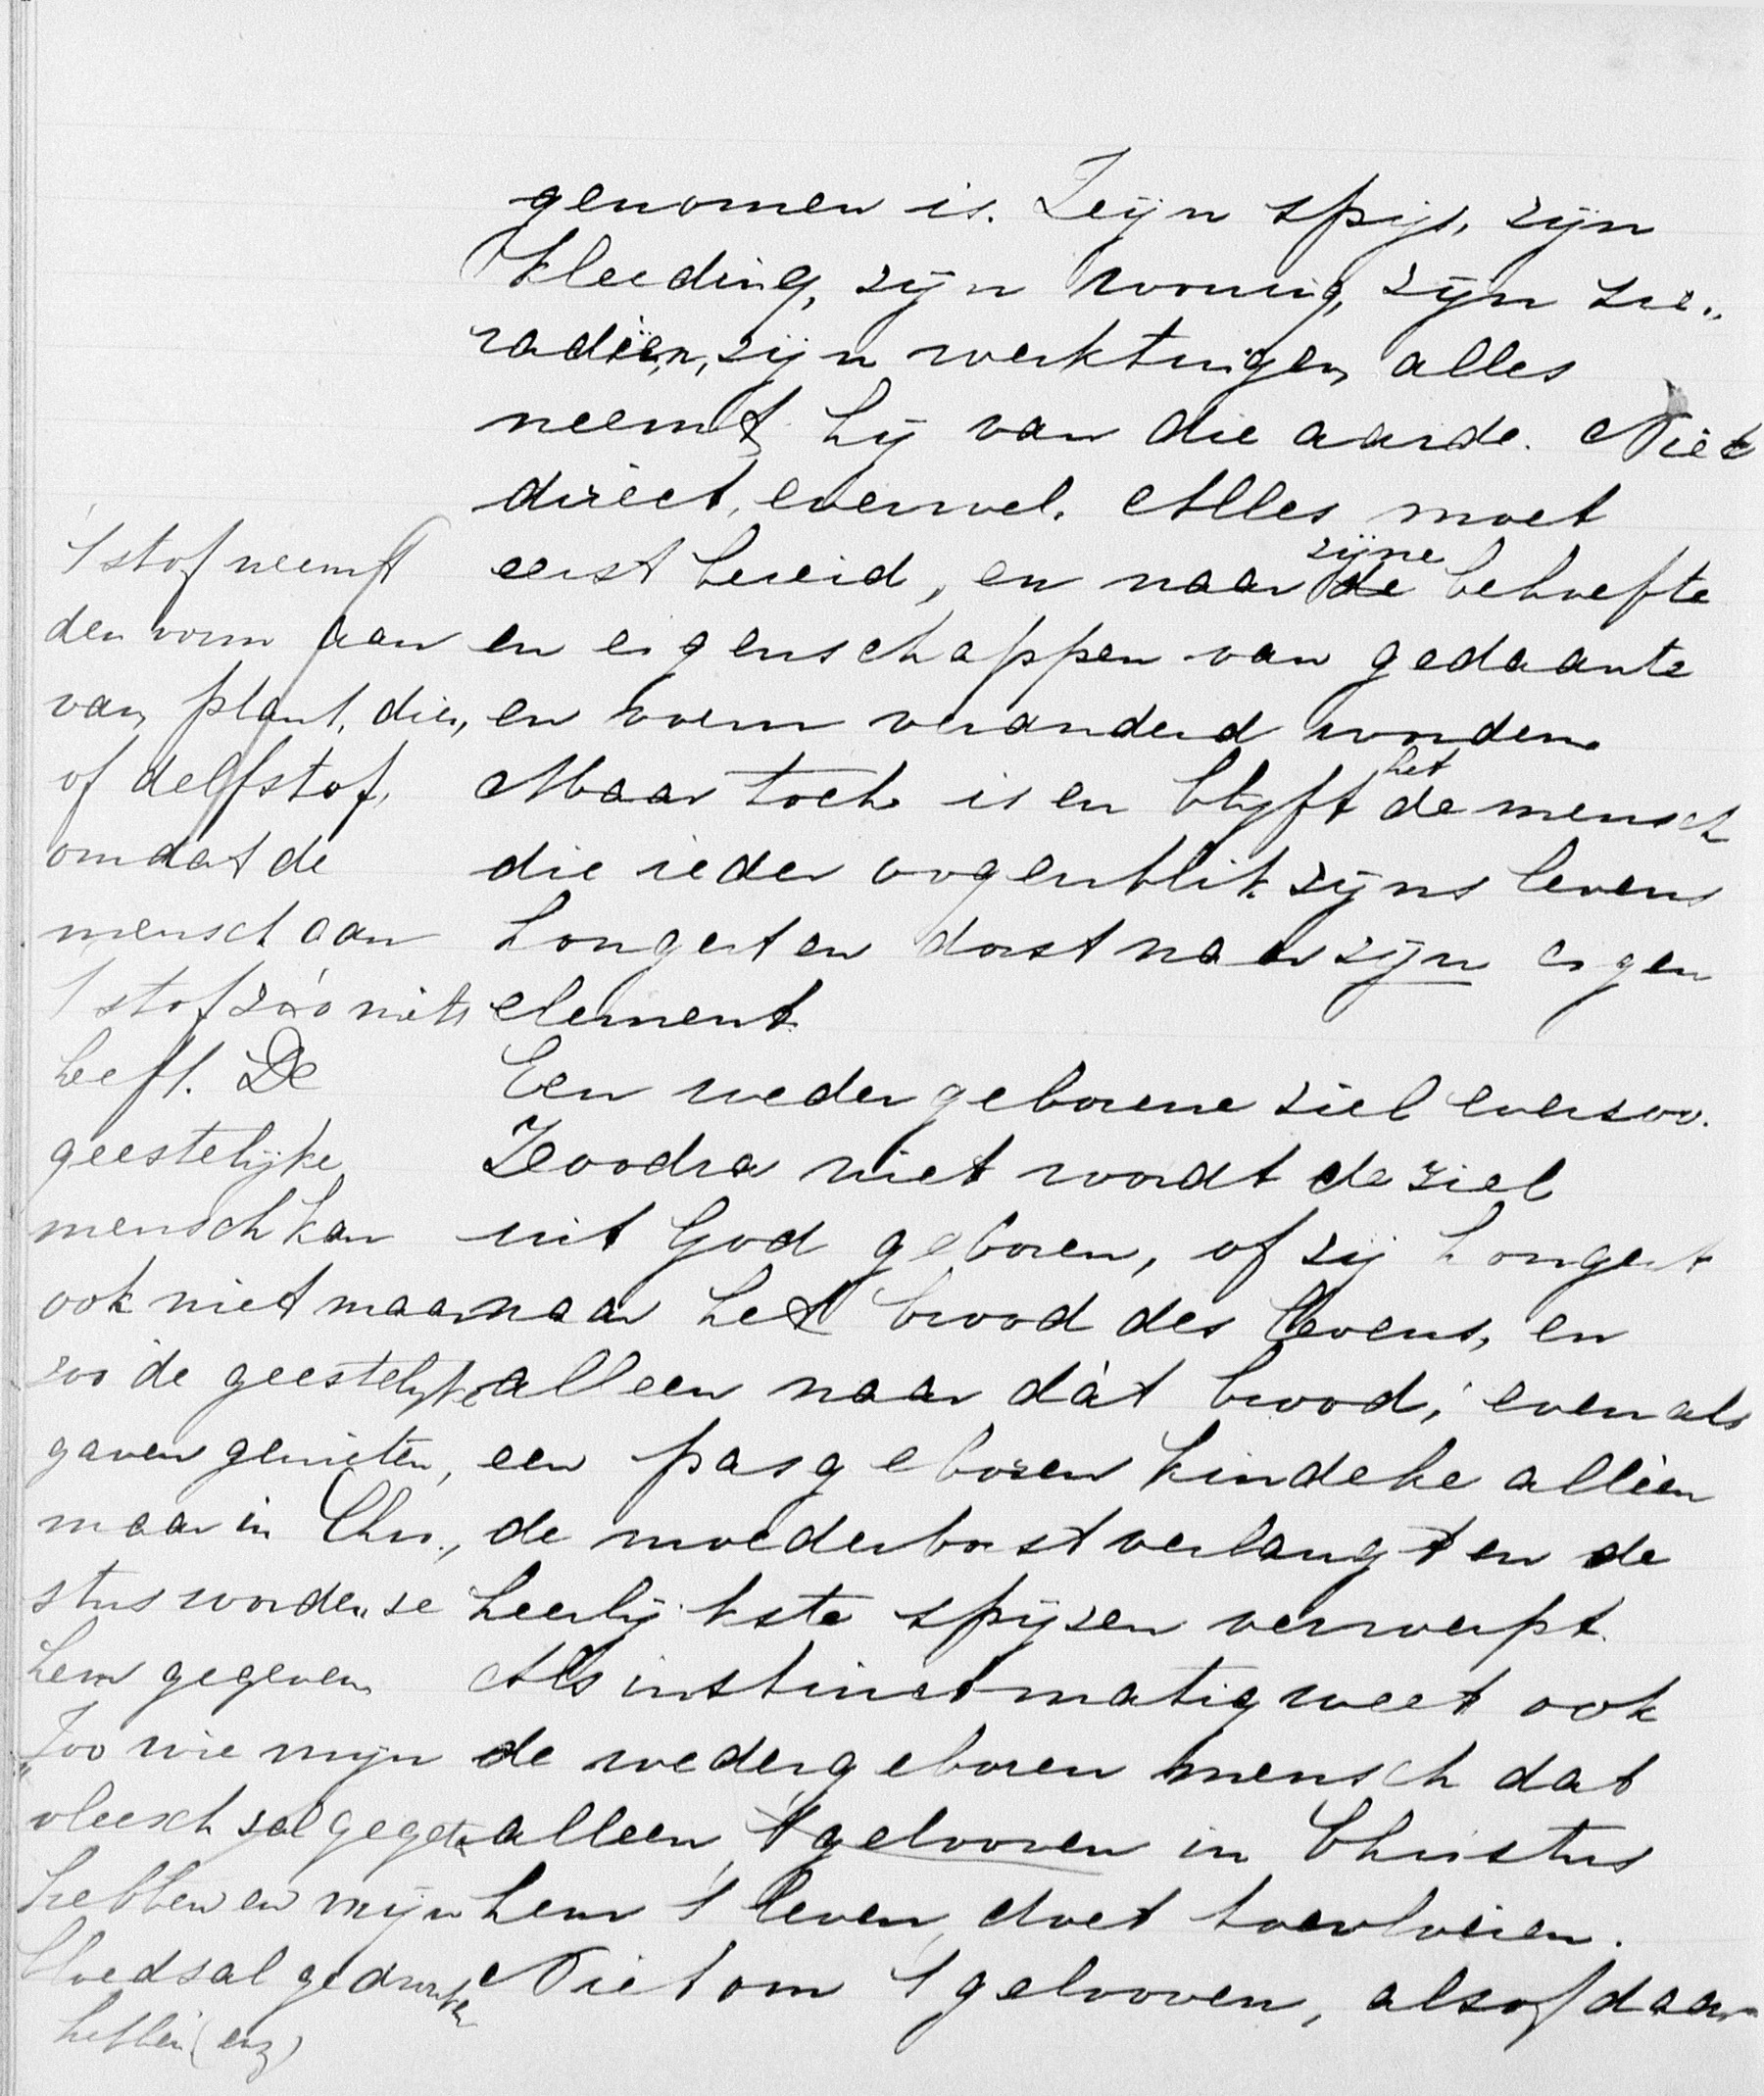 genomen is. Zijn spijs, zijn
kleeding, zijn woning, zijn sie„
radiën, zijn werktuigen, alles
neemt hij van die aarde. Niet
direct, evenwel. Alles moet
eerst bereid, en naar de zijne behoefte
en eigenschappen van gedaante
en vorm veranderd worden.
Maar toch is en blijft het de mensch
die ieder oogenblik zijns levens
hongert en dorst naar zijn eigen
element.
Een wedergeborene ziel evenzoo.
Zoodra niet wordt de ziel
uit God geboren, of zij hongert
naar het brood des levens, en
alleen naar dàt brood; evenals
een pasgeboren kindeke alléén
de moederborst verlangt en de
heerlijkste spijzen verwerpt.
Als instinctmatig weet ook
de wedergeboren mensch dat
alleen 't gelooven in Christus
hem 't leven doet toevloeien.
Niet om 't gelooven, alsof daar
't stof neemt
den vorm aan
van plant, dier,
of delfstof,
omdat de
mensch aan
't stof zóó niets
heeft. De
geestelijke
mensch kan
ook niet maar
zoo de geestelijke
gaven genieten,
maar in Chri„
stus worden ze
hem gegeven
„Zoo wie mijn
vleesch zal gegeten
hebben en mijn
bloed zal gedronken
hebben (enz)